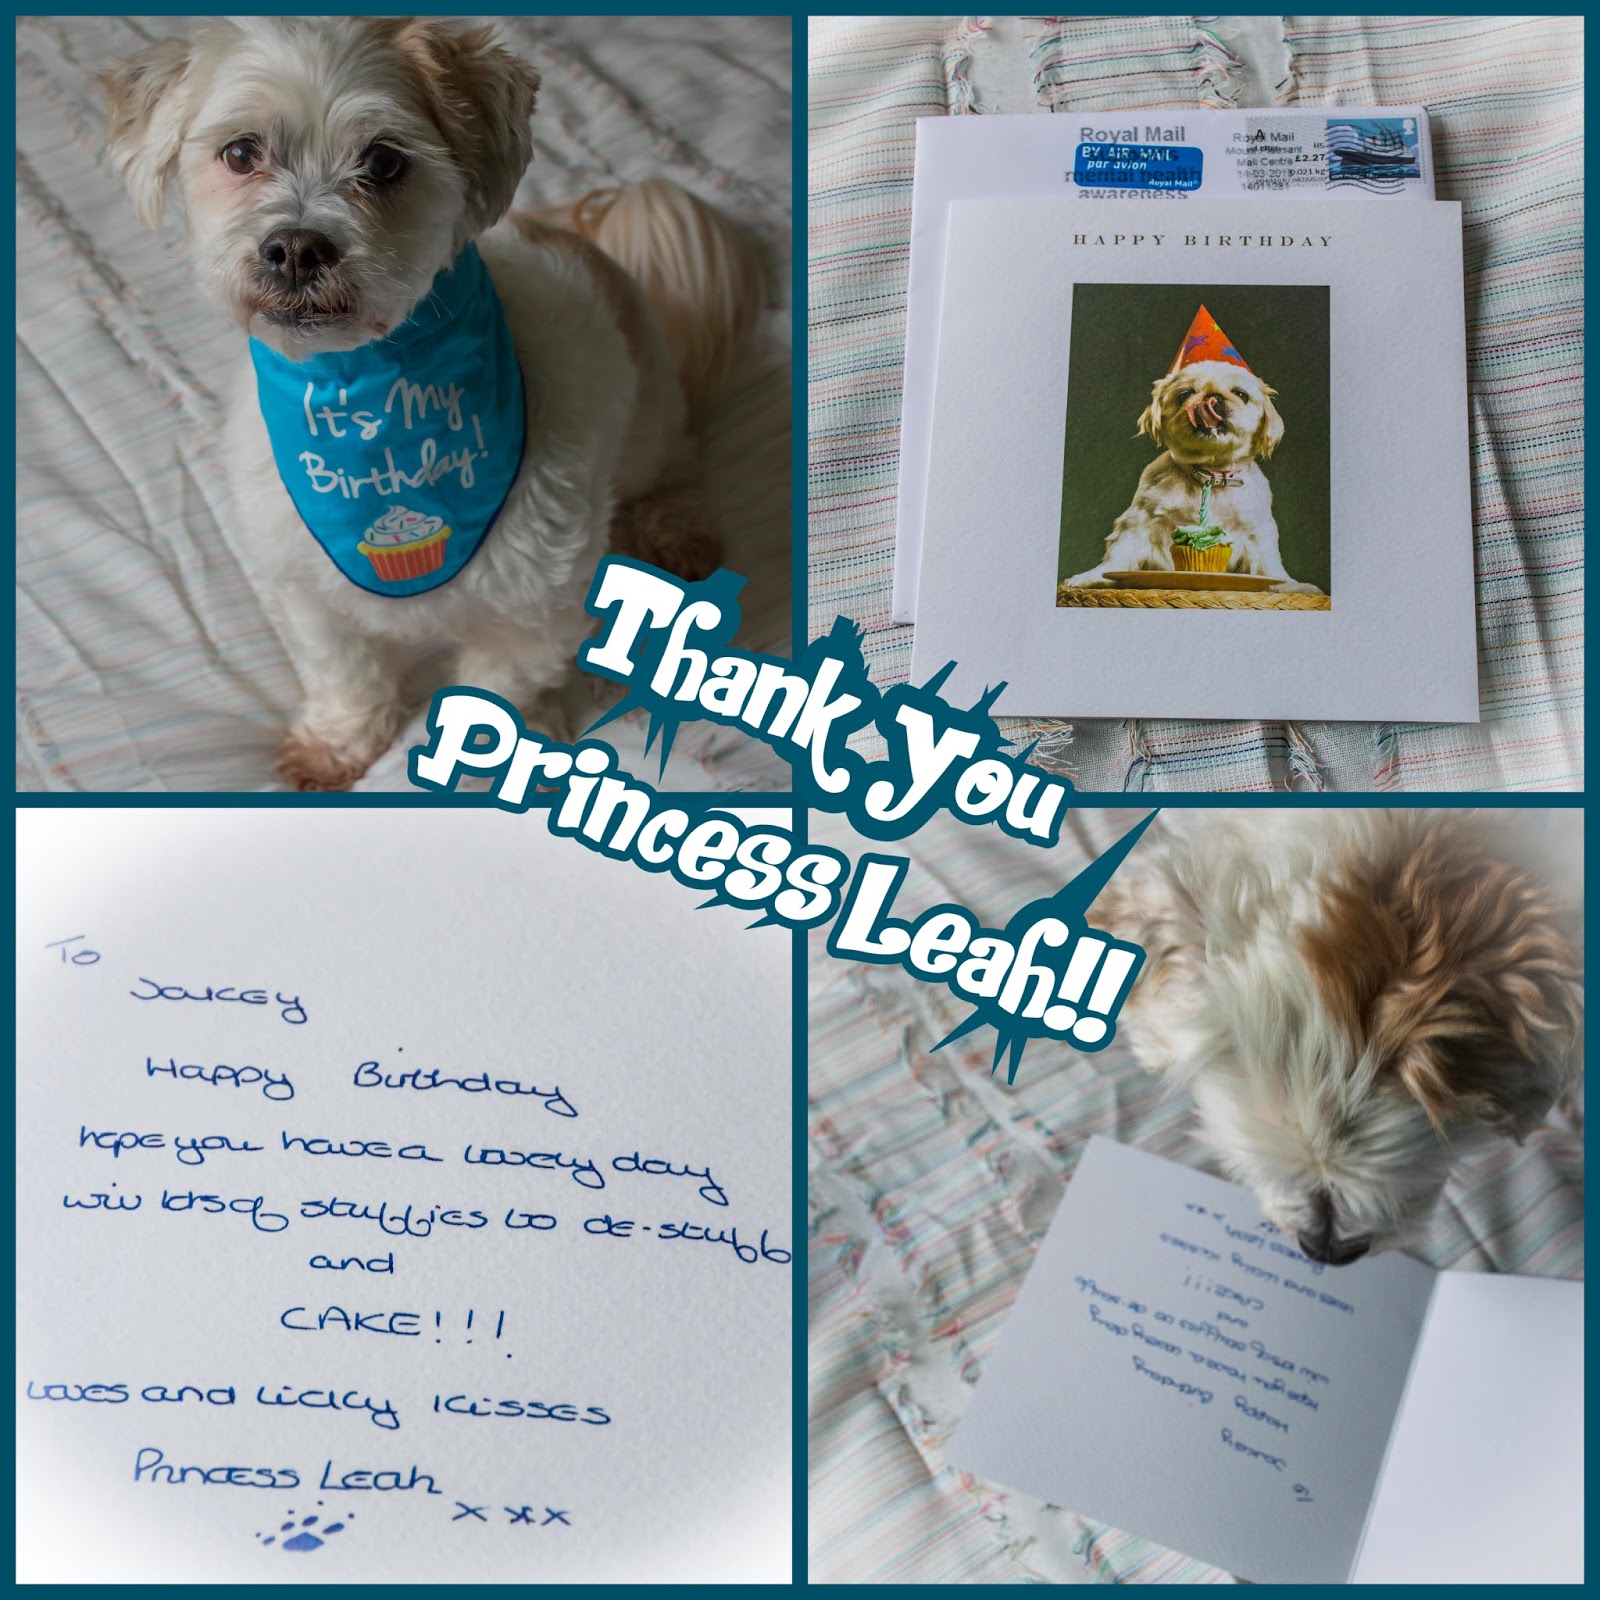 It's My
Birthday!
Royal Mail
BY AIR MAIL
par avion
Royal Mail
mental health
awareness
A
Royal Mail
Mount Pleasant
Mail Centre
£2.27
0.021 kg
14-03-2019
14011281
HAPPY BIRTHDAY
Thank You
Princess Leah!!
To
Happy Birthday
hope you have a lovely day
wiv lots of stuffies to de-stuff
and
CAKE!!!
Loves and Licky Kisses
Princess Leah
x x x
To
Happy Birthday
hope you have a lovely day
wiv lots of stuffies to de-stuff
and
CAKE!!!
Loves and Licky Kisses
Princess Leah
x x x